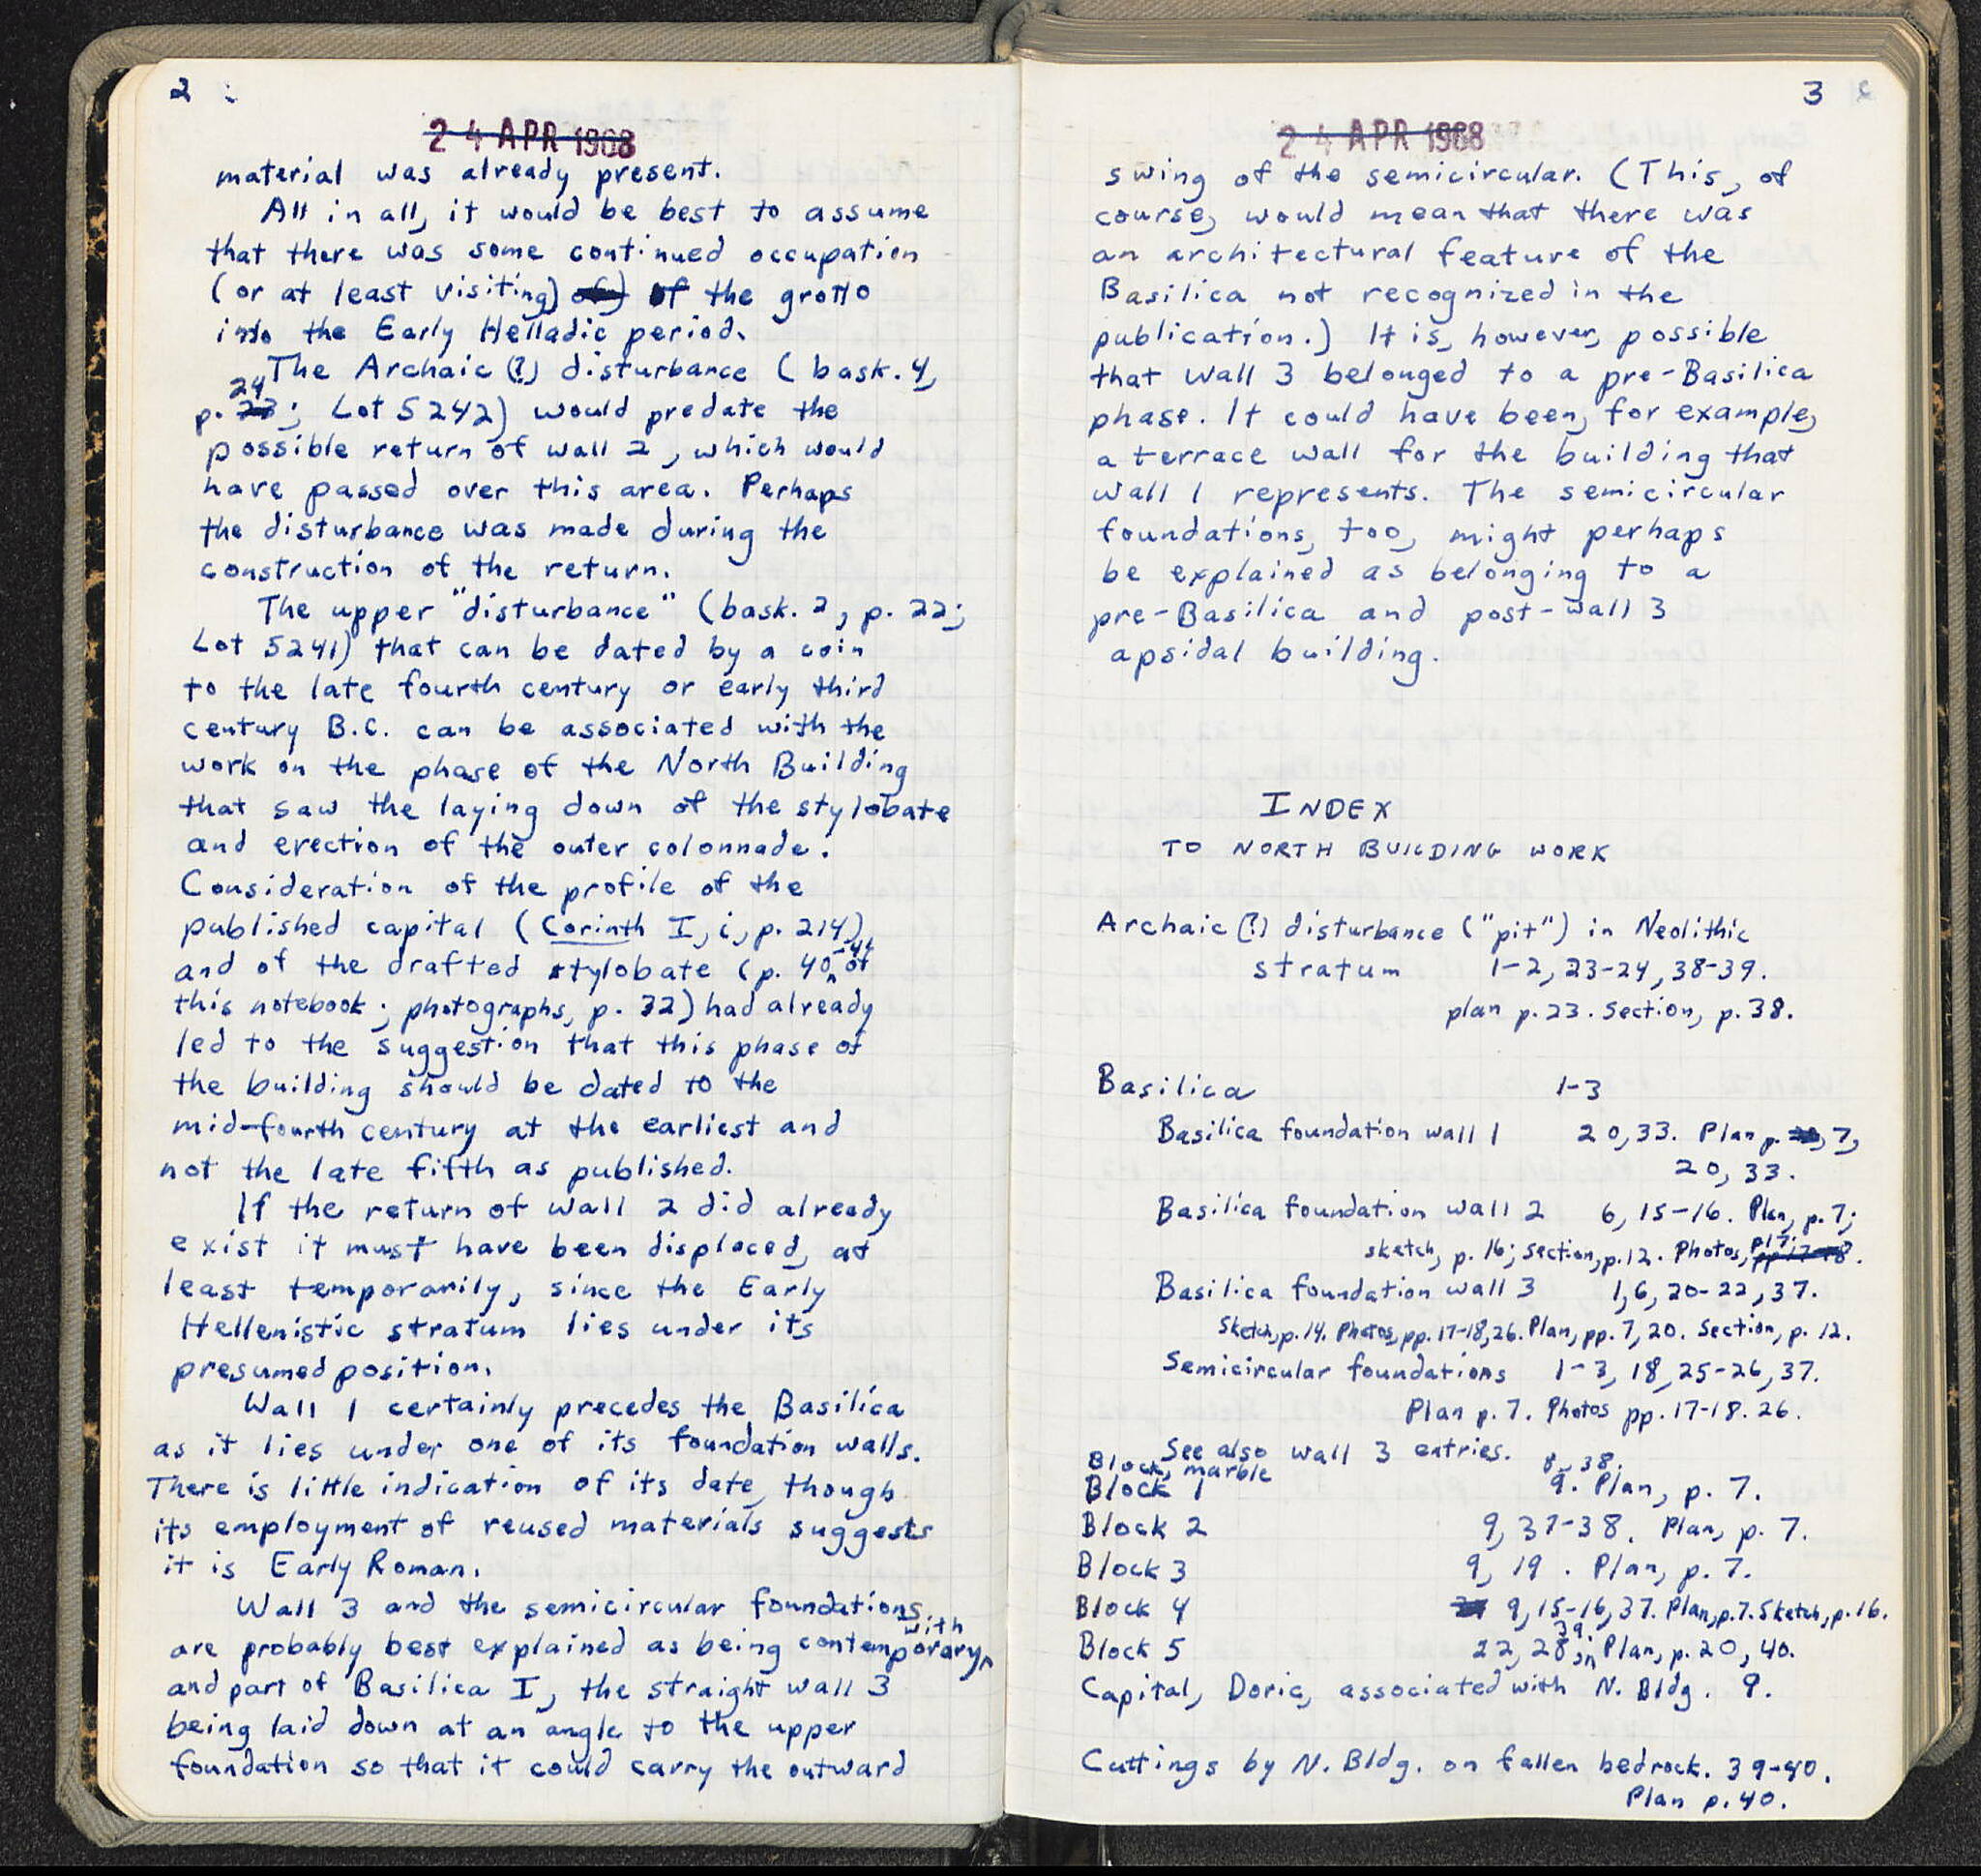 2
24 APR 1968
material was already present.
All in all, it would be best to assume
that there was some continued occupation
(or at least visiting) of the grotto
into the Early Helladic period.
The Archaic (?) disturbance (bask. 4,
p. 23 24; Lot 5242) would predate the
possible return of wall 2, which would
have passed over this area. Perhaps
the disturbance was made during the
construction of the return.
The upper "disturbance" (bask. 2, p. 22;
Lot 5241) that can be dated by a coin
to the late fourth century or early third
century B.C. can be associated with the
work on the phase of the North Building
that saw the laying down of the stylobate
and erection of the outer colonnade.
Consideration of the profile of the
published capital (Corinth I, i, p. 214),
and of the drafted stylobate (p. 40-41 of
this notebook; photographs, p. 32) had already
led to the suggestion that this phase of
the building should be dated to the
mid-fourth century at the earliest and
not the late fifth as published.
If the return of wall 2 did already
exist it must have been displaced, at
least temporarily, since the Early
Hellenistic stratum lies under its
presumed position.
Wall 1 certainly precedes the Basilica
as it lies under one of its foundation walls.
There is little indication of its date, though
its employment of reused materials suggests
it is Early Roman.
Wall 3 and the semicircular foundations
are probably best explained as being contemporary with
and part of Basilica I, the straight wall 3
being laid down at an angle to the upper
foundation so that it could carry the outward
3
24 APR 1968
swing of the semicircular. (This, of
course, would mean that there was
an architectural feature of the
Basilica not recognized in the
publication.) It is, however, possible
that Wall 3 belonged to a pre-Basilica
phase. It could have been, for example,
a terrace wall for the building that
wall 1 represents. The semicircular
foundations, too, might perhaps
be explained as belonging to a
pre-Basilica and post-wall 3
apsidal building.
INDEX
TO NORTH BUILDING WORK
Archaic (?) disturbance ("pit") in Neolithic
stratum 1-2, 23-24, 38-39.
plan p. 23. Section, p. 38.
Basilica 1-3
Basilica foundation wall 1 20, 33. Plan p. 7,
20, 33.
Basilica foundation wall 2 6, 15-16. Plan, p. 7;
sketch, p. 16; section, p. 12. Photos, pp 17-18 p 17.
Basilica foundation wall 3 1, 6, 20-22, 37.
Sketch, p. 14. Photos, pp. 17-18, 26. Plan, pp. 7, 20. Section, p. 12.
Semicircular foundations 1-3, 18, 25-26, 37.
Plan p. 7. Photos pp. 17-18. 26.
See also wall 3 entries.
Block, marble 8, 38.
Block 1 9. Plan, p. 7.
Block 2 9, 37-38. Plan, p. 7.
Block 3 9, 19. Plan, p. 7.
Block 4 9, 15-16, 37. Plan, p. 7. Sketch, p. 16.
Block 5 22, 28, 39. Plan, p. 20, 40.
Capital, Doric, associated with N. Bldg. 9.
Cuttings by N. Bldg. on fallen bedrock. 39-40.
Plan p. 40.